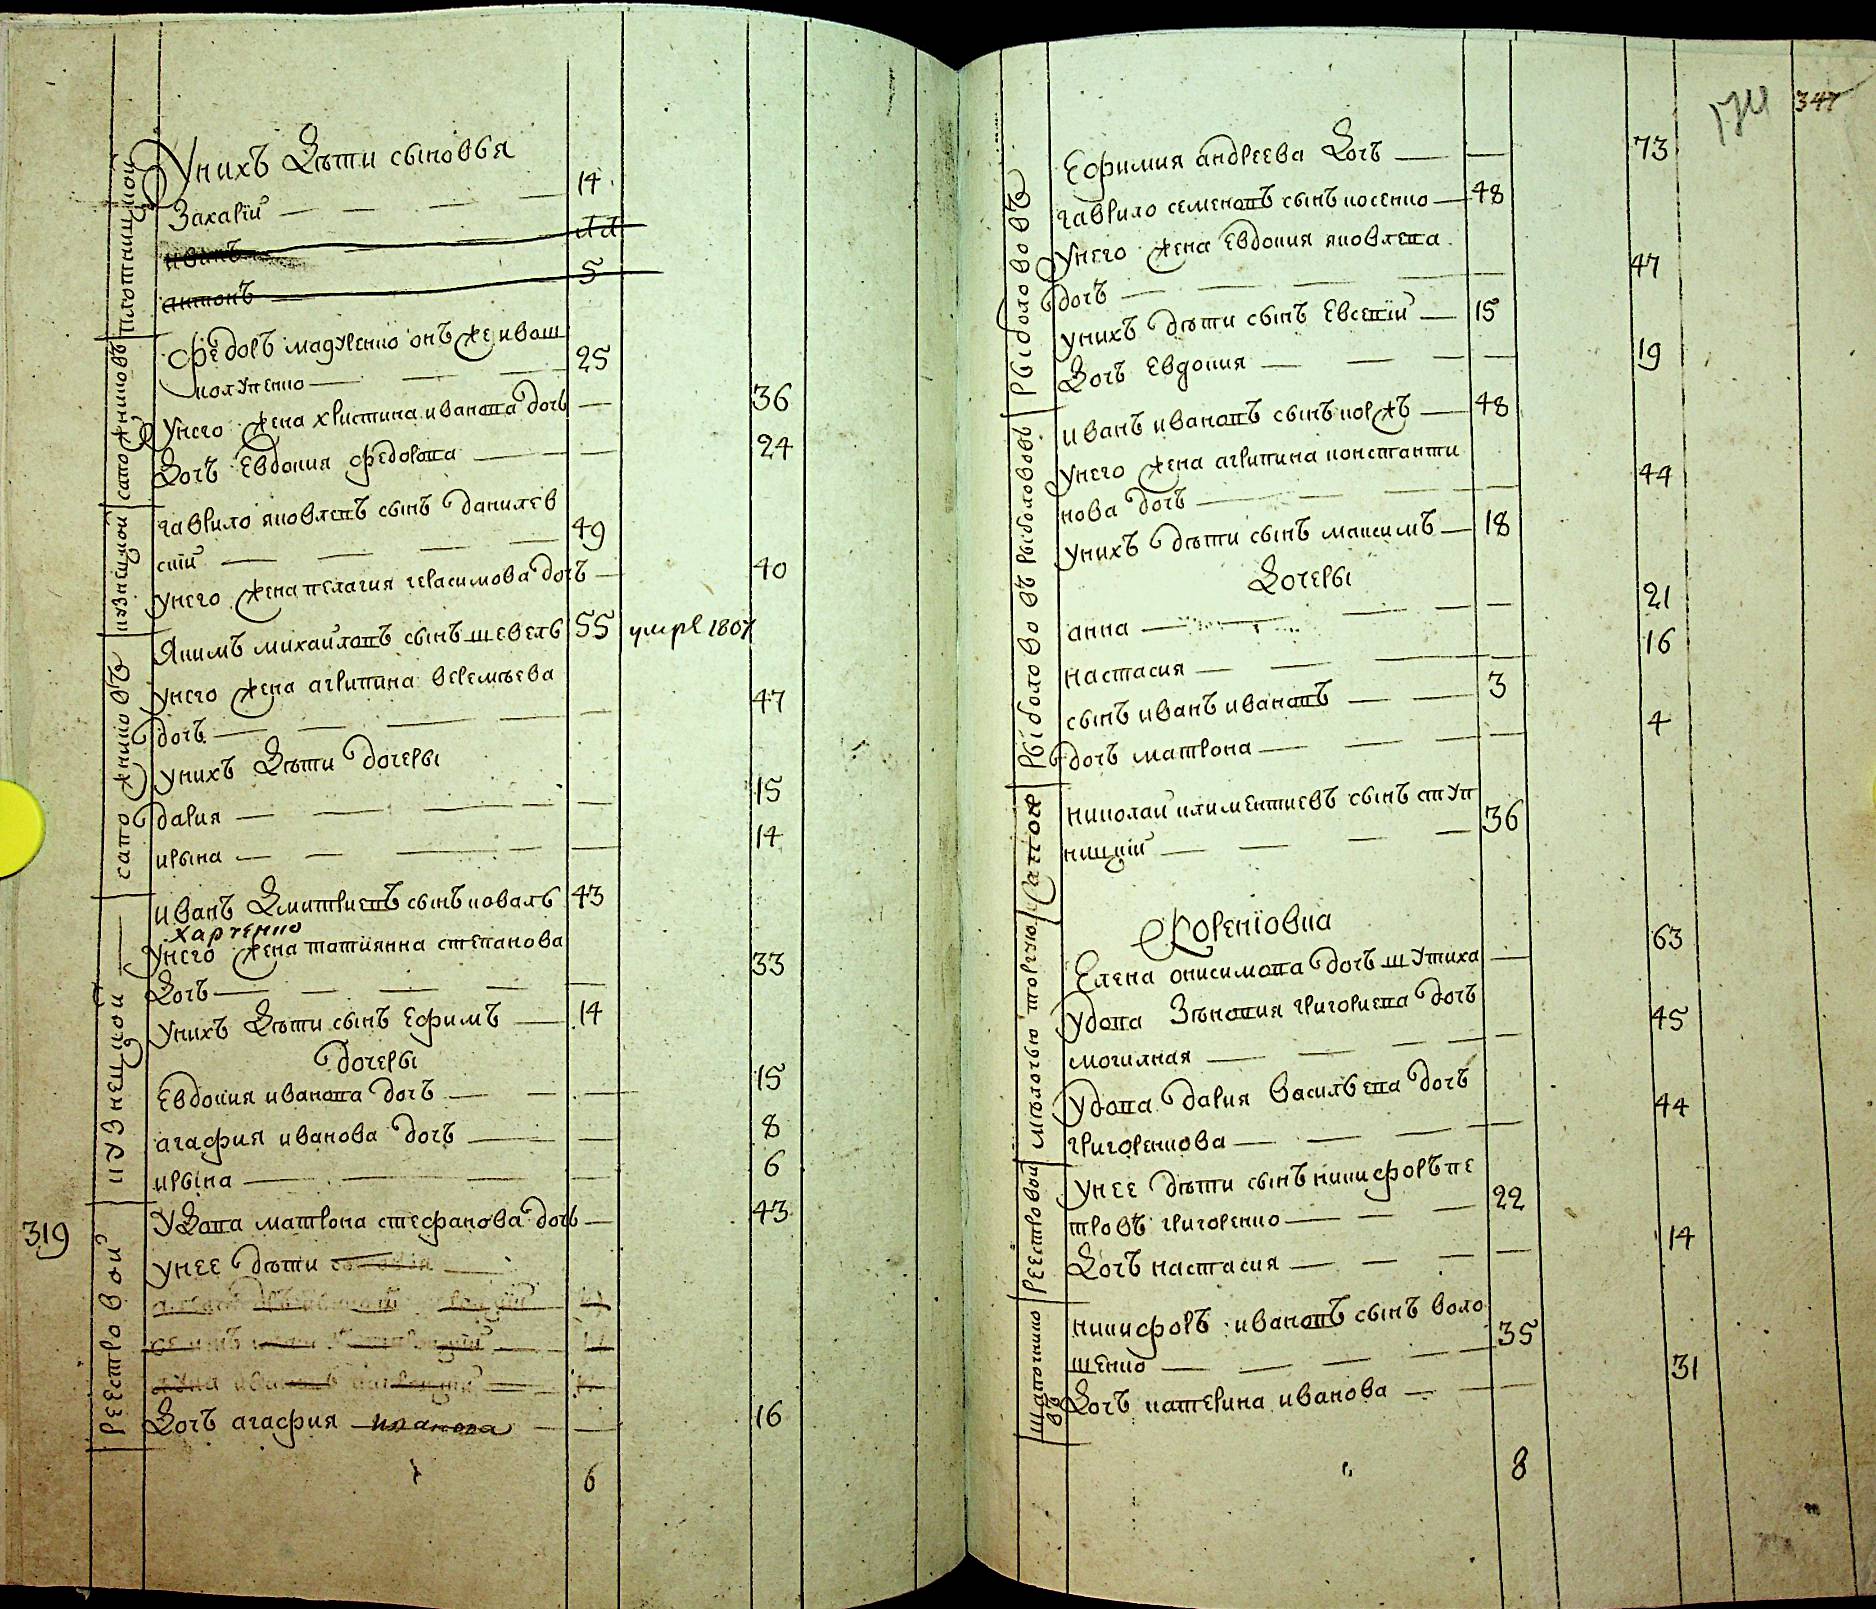 плотницкой
Унихъ дѣти сыновья
Захарїй 14
иванъ 11
антонъ 5
сапожниковъ
Федоръ мадуренко онъ же иваш
колупенко 25
Унего жена христина иванова дочь 36
Дочь Евдокия федорова 24
кузнѣцкой
гаврило яковлевъ сынъ данилев
скїй 49
унего жена пелагия герасимова дочь 40
сапожниковъ
Якимъ михайловъ сынъ шевель 55 умре 1807
унего жена агрипина веремѣева
дочь 47
унихъ дѣти дочеры
дария 15
ирына 14
кузнецкой
иванъ Дмитриевъ сынъ коваль 43
харченко
Унего жена татиянна степанова
Дочь 33
унихъ Дѣти сынъ Ефимъ 14
дочеры
Евдокия иванова дочь 15
агафия иванова дочь 8
ирына 6
319
реестровой
Удова матрона стефанова дочь 43
унее дѣти
Дочь агафия иванова 16
6
347
рыболововъ
Ефимия андреева Дочь 73
гаврило семеновъ сынъ косенко 48
Унего жена Евдокия яковлева
дочь 47
унихъ дѣти сынъ Евсевїй 15
Дочь Евдокия 19
рыболововъ рыболововъ
иванъ ивановъ сынъ коржъ 48
унего жена агрипина константи
нова дочь 44
унихъ дѣти сынъ максимъ 18
Дочеры
анна 21
настасия 16
сынъ иванъ ивановъ 3
дочь матрона 4
Николай климентиевъ сынъ ступ
ницкїй 36
мѣлочью торгую
Кореніовка
Елена онисимова дочь шутиха 63
удова Зѣновия григориева дочь
могилная 45
удова дария васильева дочь
григоренкова 44
реестровой
унее дѣти сынъ никифоръ пе
тровъ григоренко 22
Дочь настасия 14
шапочнико
въ
никифоръ ивановъ сынъ воло
шенко 35
Дочь катерина иванова 31
8